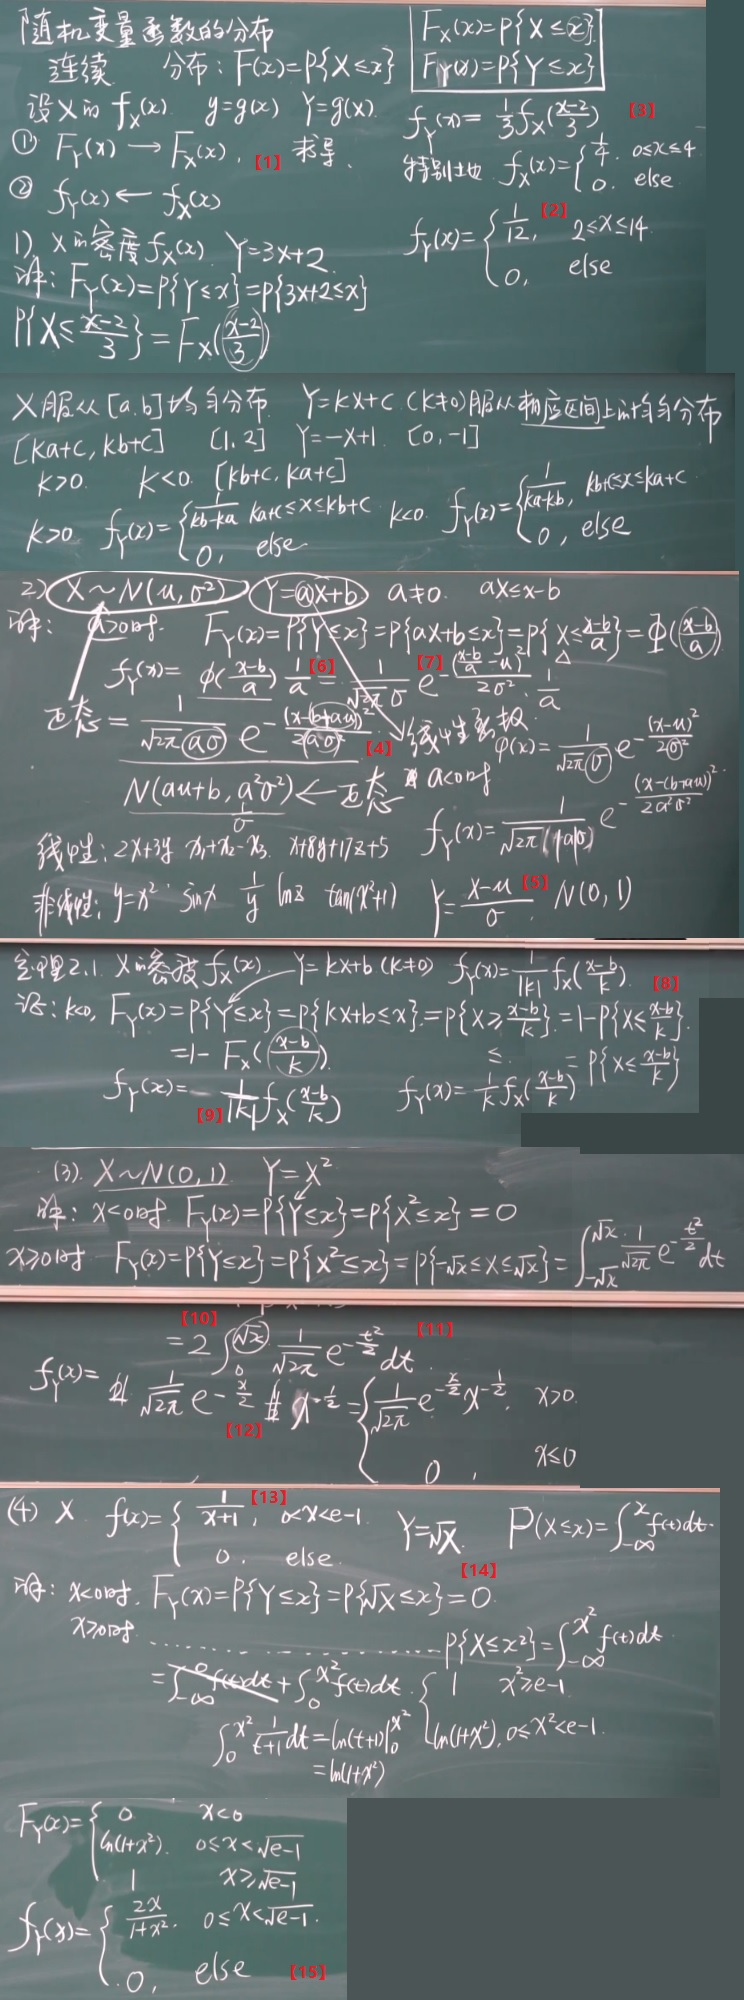 随机变量函数的分布
连续 分布：F(x)=P{X≤x}
F_X(x)=P{X≤x}
F_Y(x)=P{Y≤x}
设X的 f_X(x). y=g(x) Y=g(X).
① F_Y(x)→F_X(x), 【1】 求导、
② f_Y(x)←f_X(x)
f_Y(x)=1/3 f_X((x-2)/3) 【3】
特别地 f_X(x)={1/4, 0≤x≤4
0, else
【2】
f_Y(x)={1/12, 2≤x≤14
0, else
1) X的密度f_X(x) Y=3X+2.
解：F_Y(x)=P{Y≤x}=P{3X+2≤x}
P{X≤(x-2)/3}=F_X((x-2)/3)
X服从[a,b]均匀分布 Y=kX+c (k≠0)服从相应区间上的均匀分布
[ka+c, kb+c] [1,2] Y=-X+1 [0,-1]
k>0. k<0. [kb+c, ka+c]
k>0 f_Y(x)={1/(kb-ka) ka+c≤x≤kb+c
0, else
k<0 f_Y(x)={1/(ka-kb), kb+c≤x≤ka+c
0, else
2) X~N(u,σ²) Y=aX+b a≠0. aX≤x-b
解：a>0时. F_Y(x)=P{Y≤x}=P{aX+b≤x}=P{X≤(x-b)/a}=Φ((x-b)/a)
f_Y(x)=φ((x-b)/a) 1/a 【6】 = 1/(√2π σ) 【7】 e^(-((x-b)/a -u)²/2σ²) · 1/a
正态=1/(√2π aσ) e^(-(x-(b+au))²/2(aσ)²) 【4】 线性函数.
φ(x)=1/(√2π σ) e^(-(x-u)²/2σ²)
N(au+b, a²σ²)←正态 a<0时
1/σ
f_Y(x)=1/(√2π |a|σ) e^(-(x-(b+au))²/2a²σ²)
线性：2x+3y x₁+x₂-x₃. x+8y+17z+5
非线性：y=x² sinx 1/y lnz tan(x²+1)
Y=(X-u)/σ 【5】. N(0,1)
定理2.1. X的密度f_X(x). Y=kX+b (k≠0) f_Y(x)=1/|k| f_X((x-b)/k). 【8】
证：k<0, F_Y(x)=P{Y≤x}=P{kX+b≤x}=P{X≥(x-b)/k}=1-P{X≤(x-b)/k}.
=1-F_X((x-b)/k). ≤. =P{X≤(x-b)/k}
f_Y(x)= 【9】 1/|k| f_X((x-b)/k) f_Y(x)=1/k f_X((x-b)/k)
(3). X~N(0,1) Y=X²
解：x<0时. F_Y(x)=P{Y≤x}=P{X²≤x}=0
x≥0时 F_Y(x)=P{Y≤x}=P{X²≤x}=P{-√x≤X≤√x}=∫_{-√x}^{√x} 1/√2π e^(-t²/2) dt
【10】 =2∫_0^{√x} 1/√2π e^(-t²/2) dt. 【11】
f_Y(x)= 1/√2π e^(-x/2) 【12】 x^(-1/2) ={1/√2π e^(-x/2) x^(-1/2), x>0.
0, x≤0
(4) X f(x)={1/(x+1), 【13】 0<x<e-1.
0. else.
Y=√X 【14】 P(X≤x)=∫_{-∞}^{x} f(t)dt.
解：x<0时, F_Y(x)=P{Y≤x}=P{√X≤x}=0.
x≥0时 ........................ P{X≤x²}=∫_{-∞}^{x²} f(t)dt
=∫_{-∞}^{0} f(t)dt+∫_0^{x²} f(t)dt. {1 x²≥e-1.
ln(1+x²), 0≤x²<e-1.
∫_0^{x²} 1/(t+1) dt=ln(t+1)|_0^{x²}
=ln(1+x²)
F_Y(x)={0 x<0
ln(1+x²). 0≤x<√e-1
1 x≥√e-1
f_Y(x)={2x/(1+x²). 0≤x<√e-1.
0, else 【15】